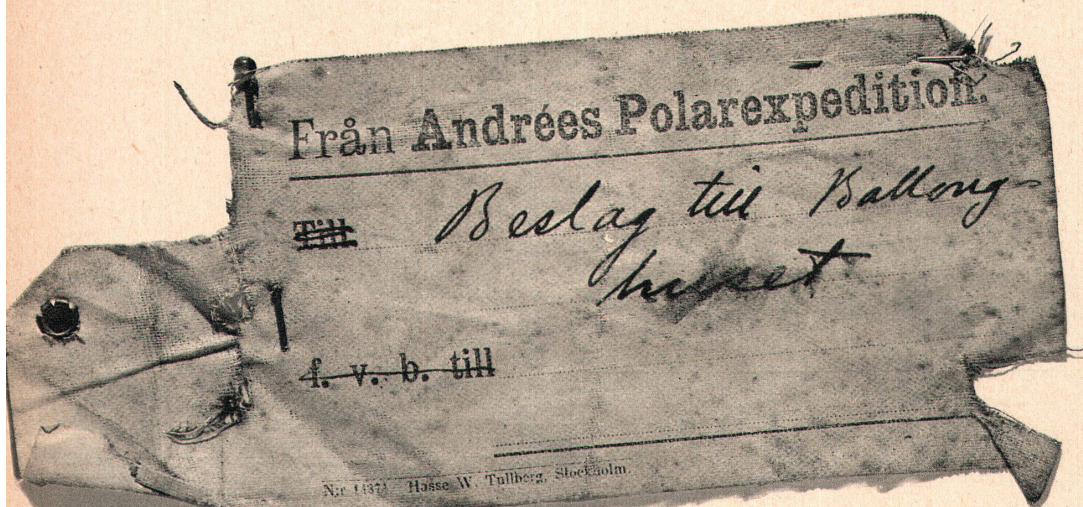 Från Andrées Polarexpedition.
Till Beslag till Ballong-
huset
f. v. b. till
N:r Hasse W. Tullberg, Stockholm.